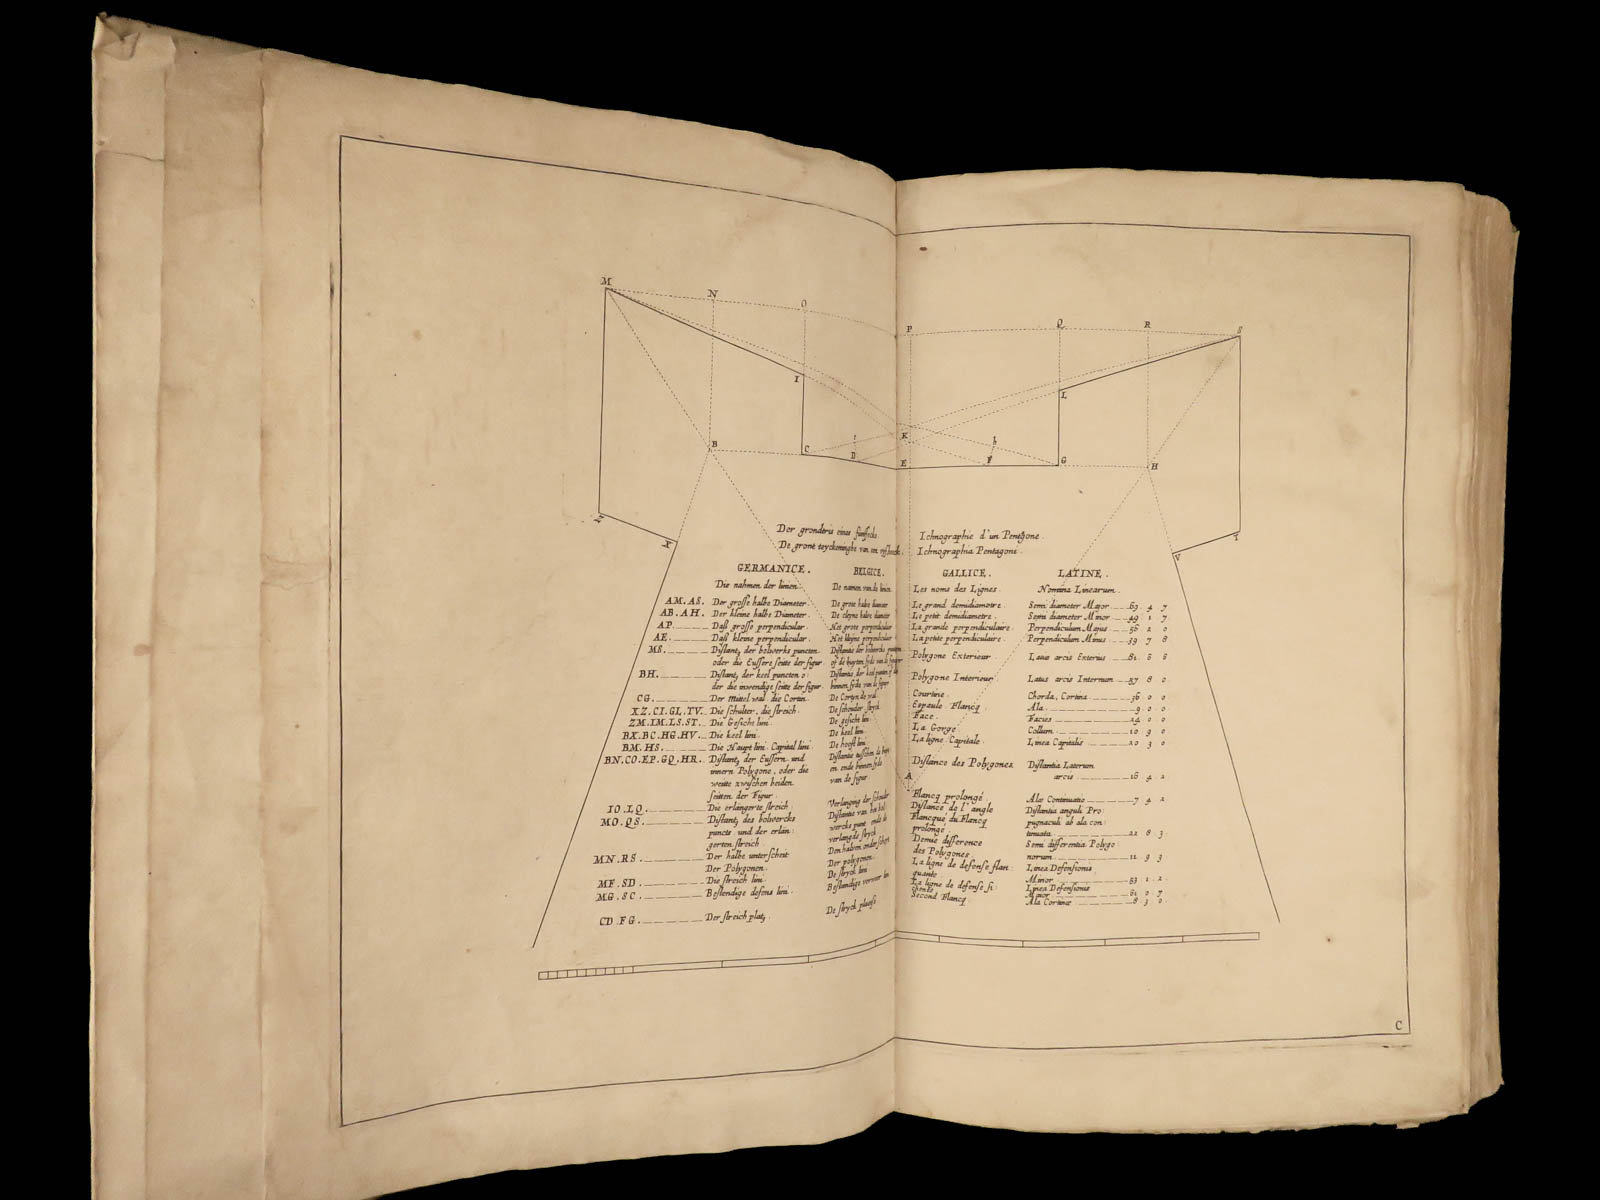 M
N
O
P
Q
R
S
I
L
B
C
D
E
K
F
G
H
h
X
Z
V
T
Der grondtris eines funffecks
De gront teyckeninghe van een vijfhoeck.
Ichnographie d'un Pentagone.
Ichnographia Pentagoni.
GERMANICE. BELGICE. GALLICE. LATINE.
Die nahmen der linien. De namen van de linien Les noms des Lignes. Nomina Linearum.
AM. AS. Der grosse halbe Diameter. De grote halve diameter Le grand demidiametre. Semi diameter Major 69 4 7
AB. AH. Der kleine halbe Diameter. De cleyne halve diameter Le petit demidiametre. Semi diameter Minor 49 1 7
AP. Daß grosse perpendicular. Het grote perpendicular La grande perpendiculaire. Perpendiculum Majus 56 2 0
AE. Daß kleine perpendicular. Het kleyne perpendicular La petite perpendiculaire. Perpendiculum Minus 39 7 8
MS. Distantz der bolwercks puncten Distantie der bolwercks puncten Polygone Exterieur Latus arcis Exterius 81 6 6
oder die Eussere seitte der figur
BH. Distantz der keel puncten o: Polygone Interieur Latus arcis Internum 57 8 0
der die inwendige seitte der figur binnen syde van de figur
CG. Der Mittel wal. die Cortin. De Cortyn de wal Courtine. Chorda. Cortina 36 0 0
XZ. CI. GL. TV. Die schulter, die streich. De schouder stryck Espaule Flancq. Ala 9 0 0
ZM. IM. LS. ST. Die Gesicht lini. De gesicht lini Face. Facies 24 0 0
BX. BC. HG. HV. Die keel lini. De keel lini La Gorge. Collum 10 9 0
BM. HS. Die Haupt lini Capital lini. De hooft lini La ligne Capitale. Linea Capitalis 20 3 0
BN. CO. EP. GQ. HR. Distantz der Eussern und Distance des Polygones Distantia Laterum
innern Polygone, oder die en ende binnen syde arcis 16 4 2
weitte zwischen beiden van de figur
seitten der Figur.
A
IO. LQ. Die erlängerte streich. Verlanging der schouder Flancq prolongé Alæ Continuatio 7 4 2
MO. QS. Distantz des bolwercks Distance de l'angle Distantia anguli Pro:
puncts und der erlän: Flancque du Flancq pugnaculi ab ala con:
gerten streich. prolongé. tinuata 22 8 3
MN. RS. Der halbe unterscheit Demie difference Semi differentia Polygo
Der Polygonen. Der polygonen. des Polygones norum 11 9 3
MF. SD. Die streich lini. De stryck lini La ligne de defense flan: Linea Defensionis
quante. Minor 53 1 2
MG. SC. Bestendige defens lini. La ligne de defense fi: Linea Defensionis
chente. Major 61 0 7
CD. FG. Der streich platz. De stryck plaets Second Flancq. Ala Cortinæ 8 3 0
C